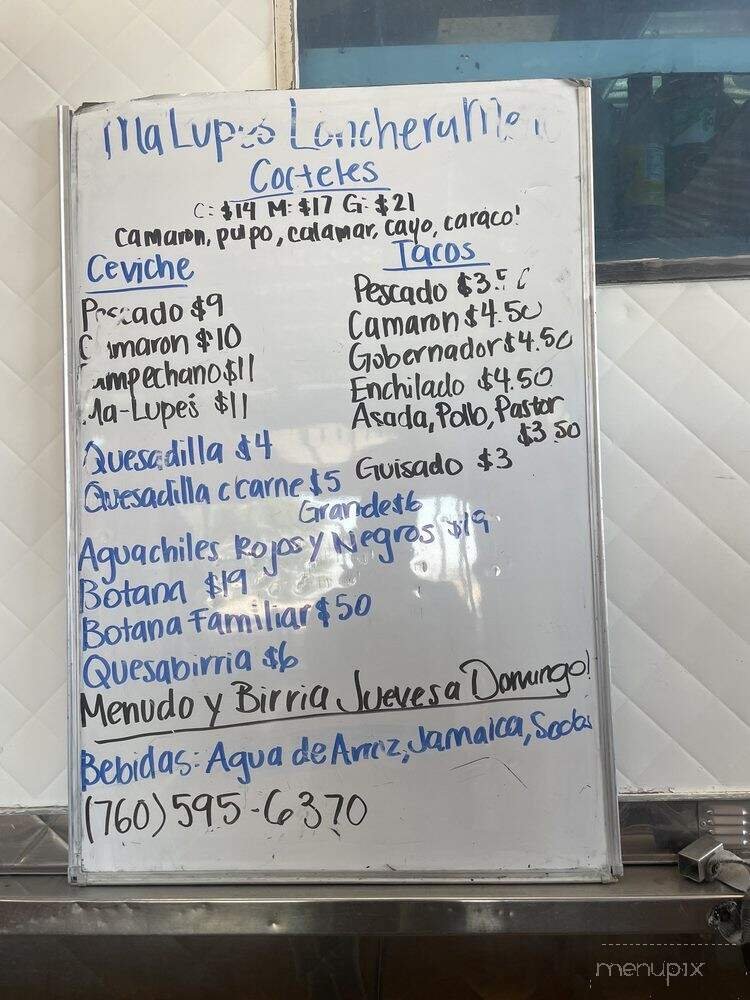 Ma Lupes Lonchera
Cocteles
C: $14 M: $17 G: $21
Camaron, pulpo, calamar, cayo, caraco!
Ceviche
Pescado $9
Camaron $10
Campechano $11
Ma-Lupes $11
Tacos
Pescado $3.50
Camaron $4.50
Gobernador $4.50
Enchilado $4.50
Asada, Pollo, Pastor
$3.50
Guisado $3
Quesadilla $4
Quesadilla c/carne $5
Grande $6
Aguachiles Rojos y Negros $19
Botana $19
Botana Familiar $50
Quesabirria $6
Menudo y Birria Jueves a Domingo!
Bebidas: Agua de Arroz, Jamaica, Sodas
(760) 595-6370
menupix